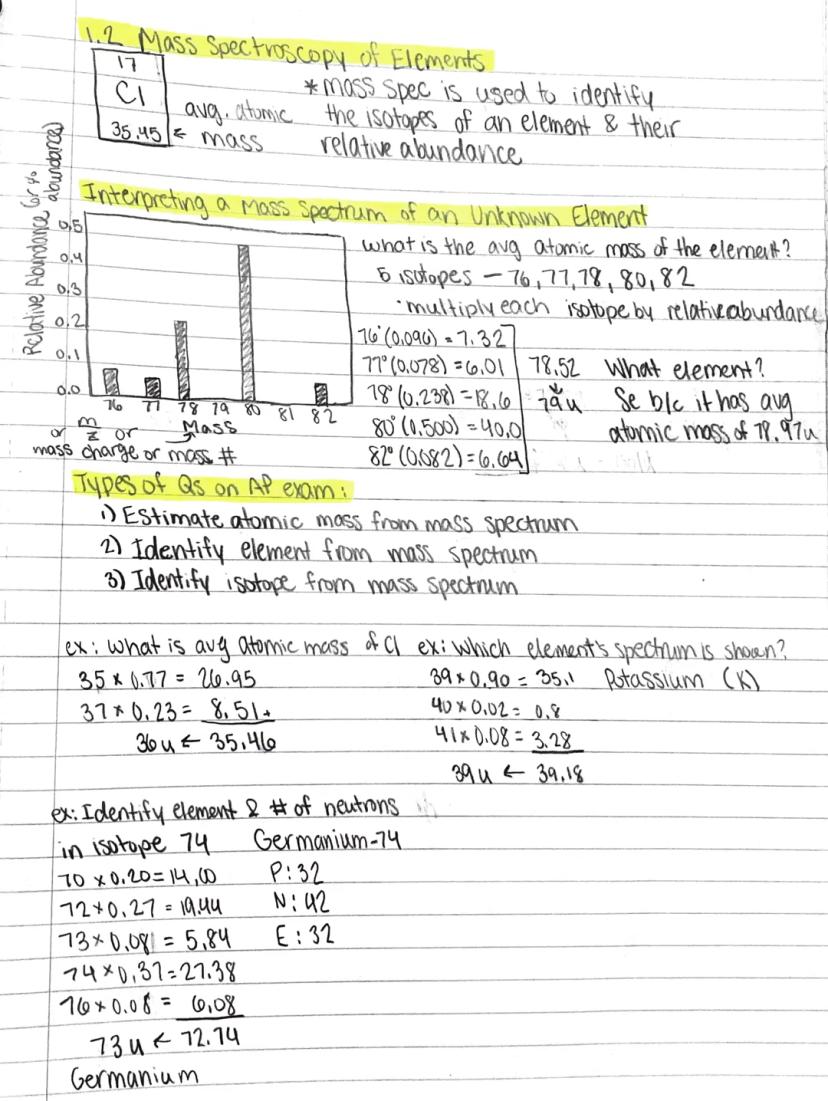 1.2 Mass Spectroscopy of Elements
17
Cl
35.45 ← avg. atomic mass
* mass spec is used to identify
the isotopes of an element & their
relative abundance
Interpreting a Mass Spectrum of an Unknown Element
Relative Abundance (or % abundance)
0.5
0.4
0.3
0.2
0.1
0.0
76 77 78 79 80 81 82
m/z or Mass
or mass charge or mass #
what is the avg atomic mass of the element?
5 isotopes – 76, 77, 78, 80, 82
· multiply each isotope by relative abundance
76·(0.096) = 7.32
77·(0.078) = 6.01
78·(0.238) = 18.6
80·(0.500) = 40.0
82·(0.082) = 6.64
78.52
79u
What element?
Se b/c it has avg
atomic mass of 78.97u
Types of Qs on AP exam:
1) Estimate atomic mass from mass spectrum
2) Identify element from mass spectrum
3) Identify isotope from mass spectrum
ex: what is avg atomic mass of Cl
35 × 0.77 = 26.95
37 × 0.23 = 8.51 +
36u ← 35.46
ex: which element's spectrum is shown?
39 × 0.90 = 35.1 Potassium (K)
40 × 0.02 = 0.8
41 × 0.08 = 3.28
39u ← 39.18
ex: Identify element & # of neutrons
in isotope 74 Germanium-74
70 × 0.20 = 14.00 P: 32
72 × 0.27 = 19.44 N: 42
73 × 0.08 = 5.84 E: 32
74 × 0.37 = 27.38
76 × 0.08 = 6.08
73u ← 72.74
Germanium